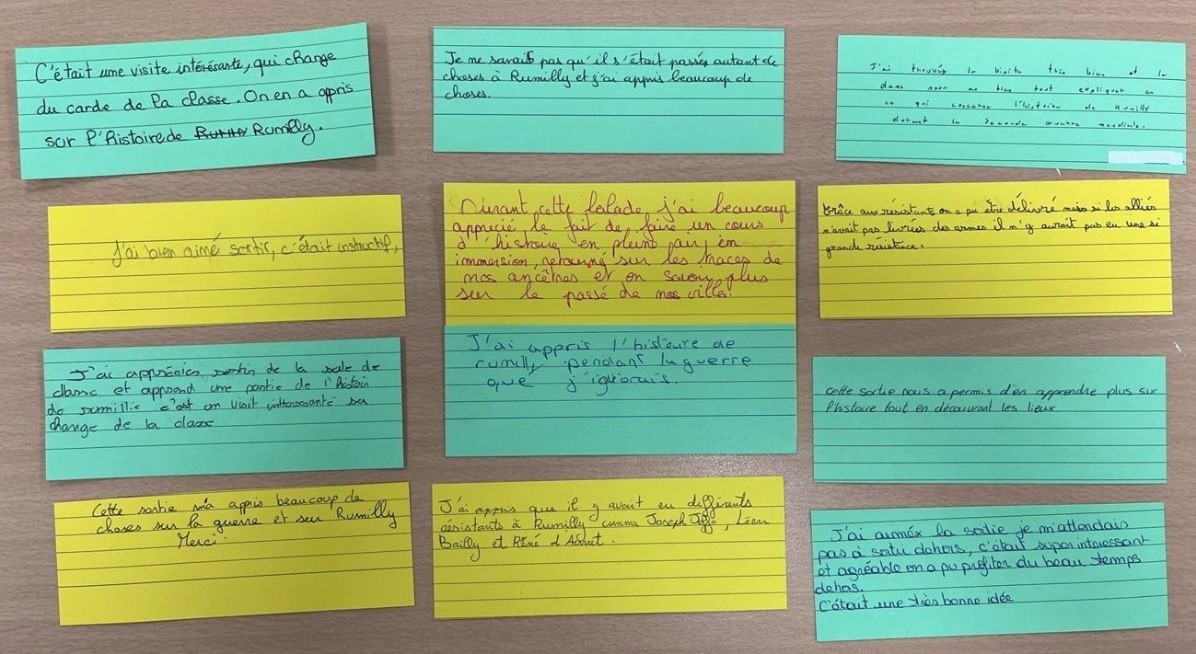 C'était une visite intérésante, qui change
du carde de la classe. On en a appris
sur l'histoire de Rumilly.
Je ne savait pas qu'il s'était passés autant de
choses à Rumilly et j'ai appris beaucoup de
choses.
J'ai trouvés la visite très bien et la
dame nous as bien tout expliquer en
ce qui concerne l'histoire de Rumilly
durant la seconde guerre mondiale.
J'ai bien aimé sortir, c'était instructif,
Durant cette balade j'ai beaucoup
apprécié le fait de faire un cours
d'histoire en plein air, en
immersion, retourné sur les traces de
nos ancêtres et en savoir plus
sur le passé de nos ville.
Grâce aux résistants on a pu être délivré mais si les alliés
n'avait pas livrées des armes il n'y aurait pas eu une si
grande resistance.
J'ai appréciés sortir de la sale de
classe et apprend une partie de l'histoir
de rumillie c'est un visit intteressante sa
change de la classe
J'ai appris l'histoire de
rumilly pendant la guerre
que j'ignorais.
cette sortie nous a permis d'en apprendre plus sur
l'histoire tout en découvrant les lieux
Cette sortie m'a appris beaucoup de
choses sur la guerre et sur Rumilly
Merci.
J'ai appris que il y avait eu différents
résistants à Rumilly comme Joseph Léon
Bailly et René d'
J'ai aimée la sortie je m'attendais
pas a sortir dehors, c'était super interessant
et agréable on a pu profiter du beau temps
dehors.
C'était une très bonne idée